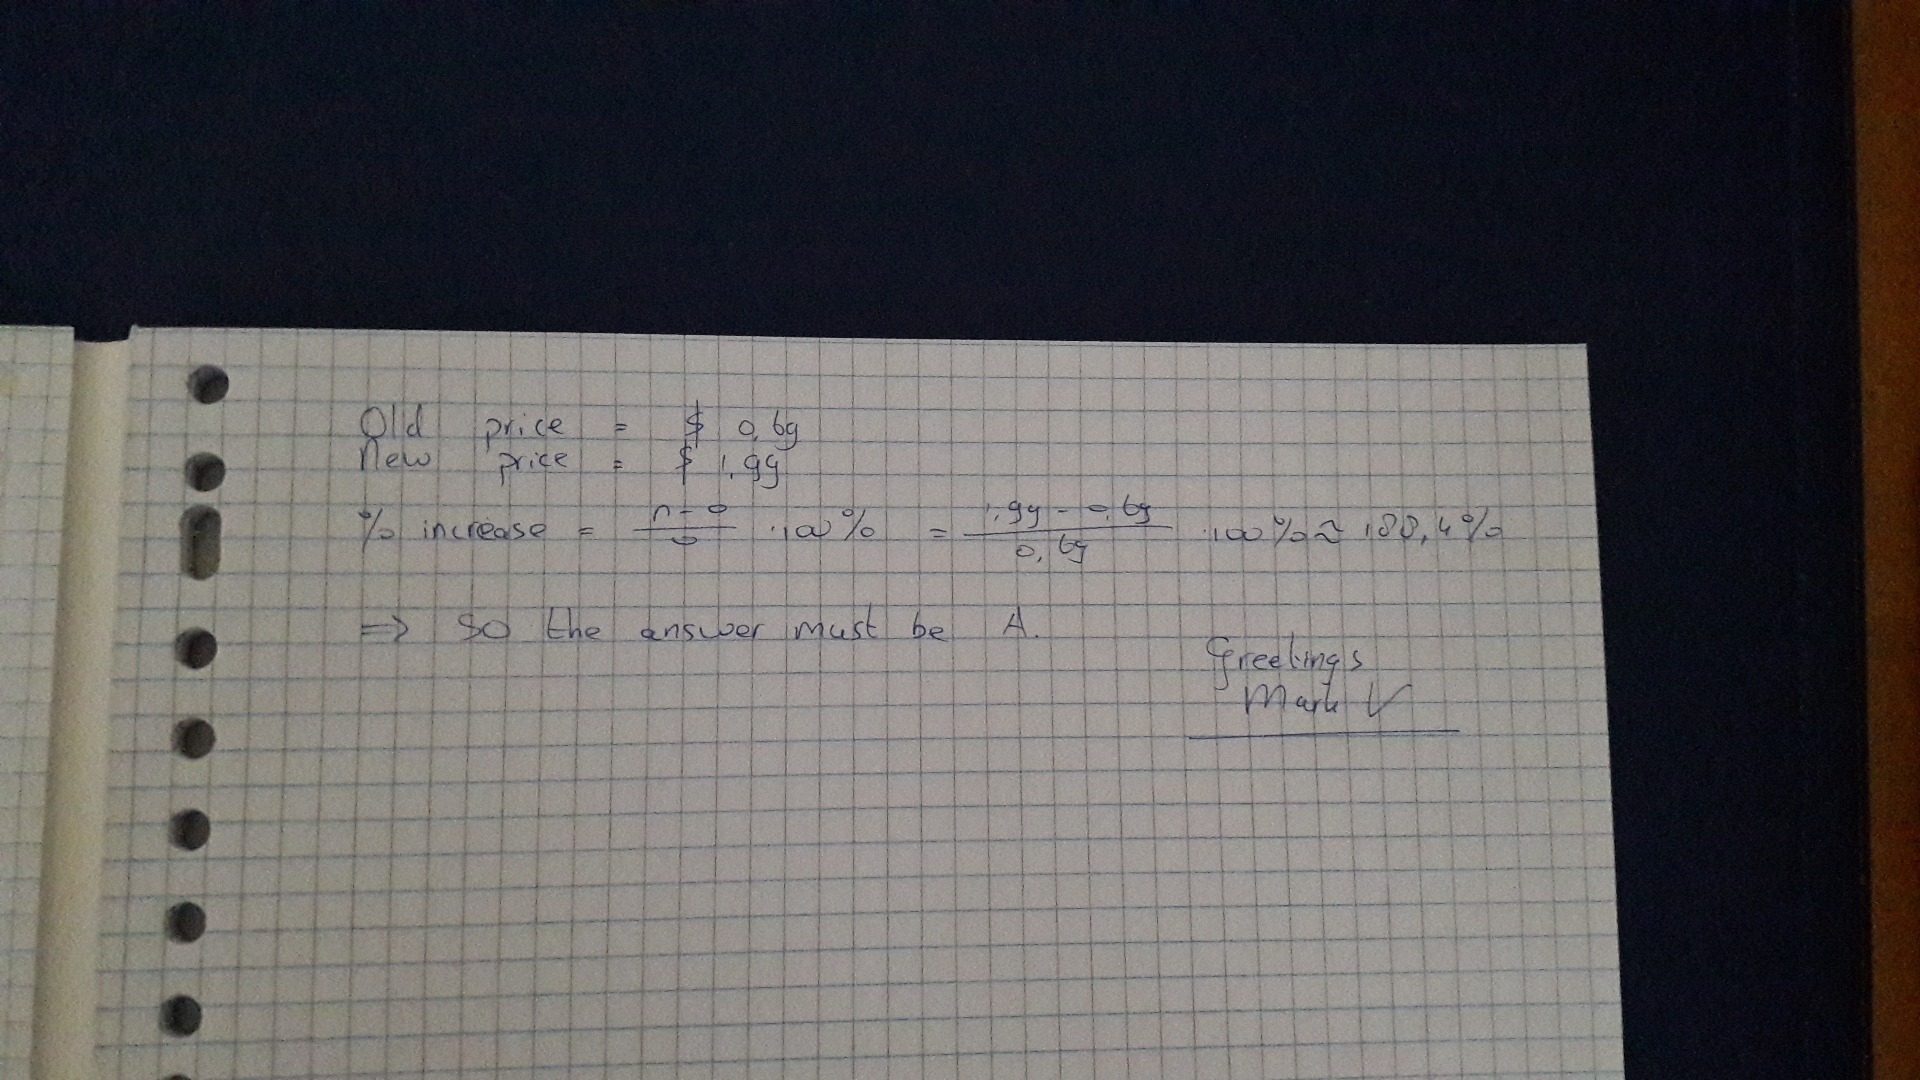 Old price = $ 0,69
New price = $ 1,99
% increase = n - o / o · 100% = 1,99 - 0,69 / 0,69 · 100% ≈ 188,4%
=> so the answer must be A.
Greetings
Mark V